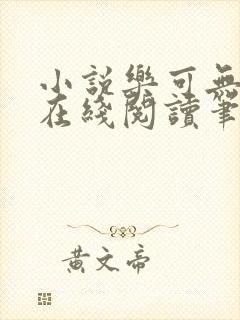 小說樂可無
在綫閱讀筆
黃文帝